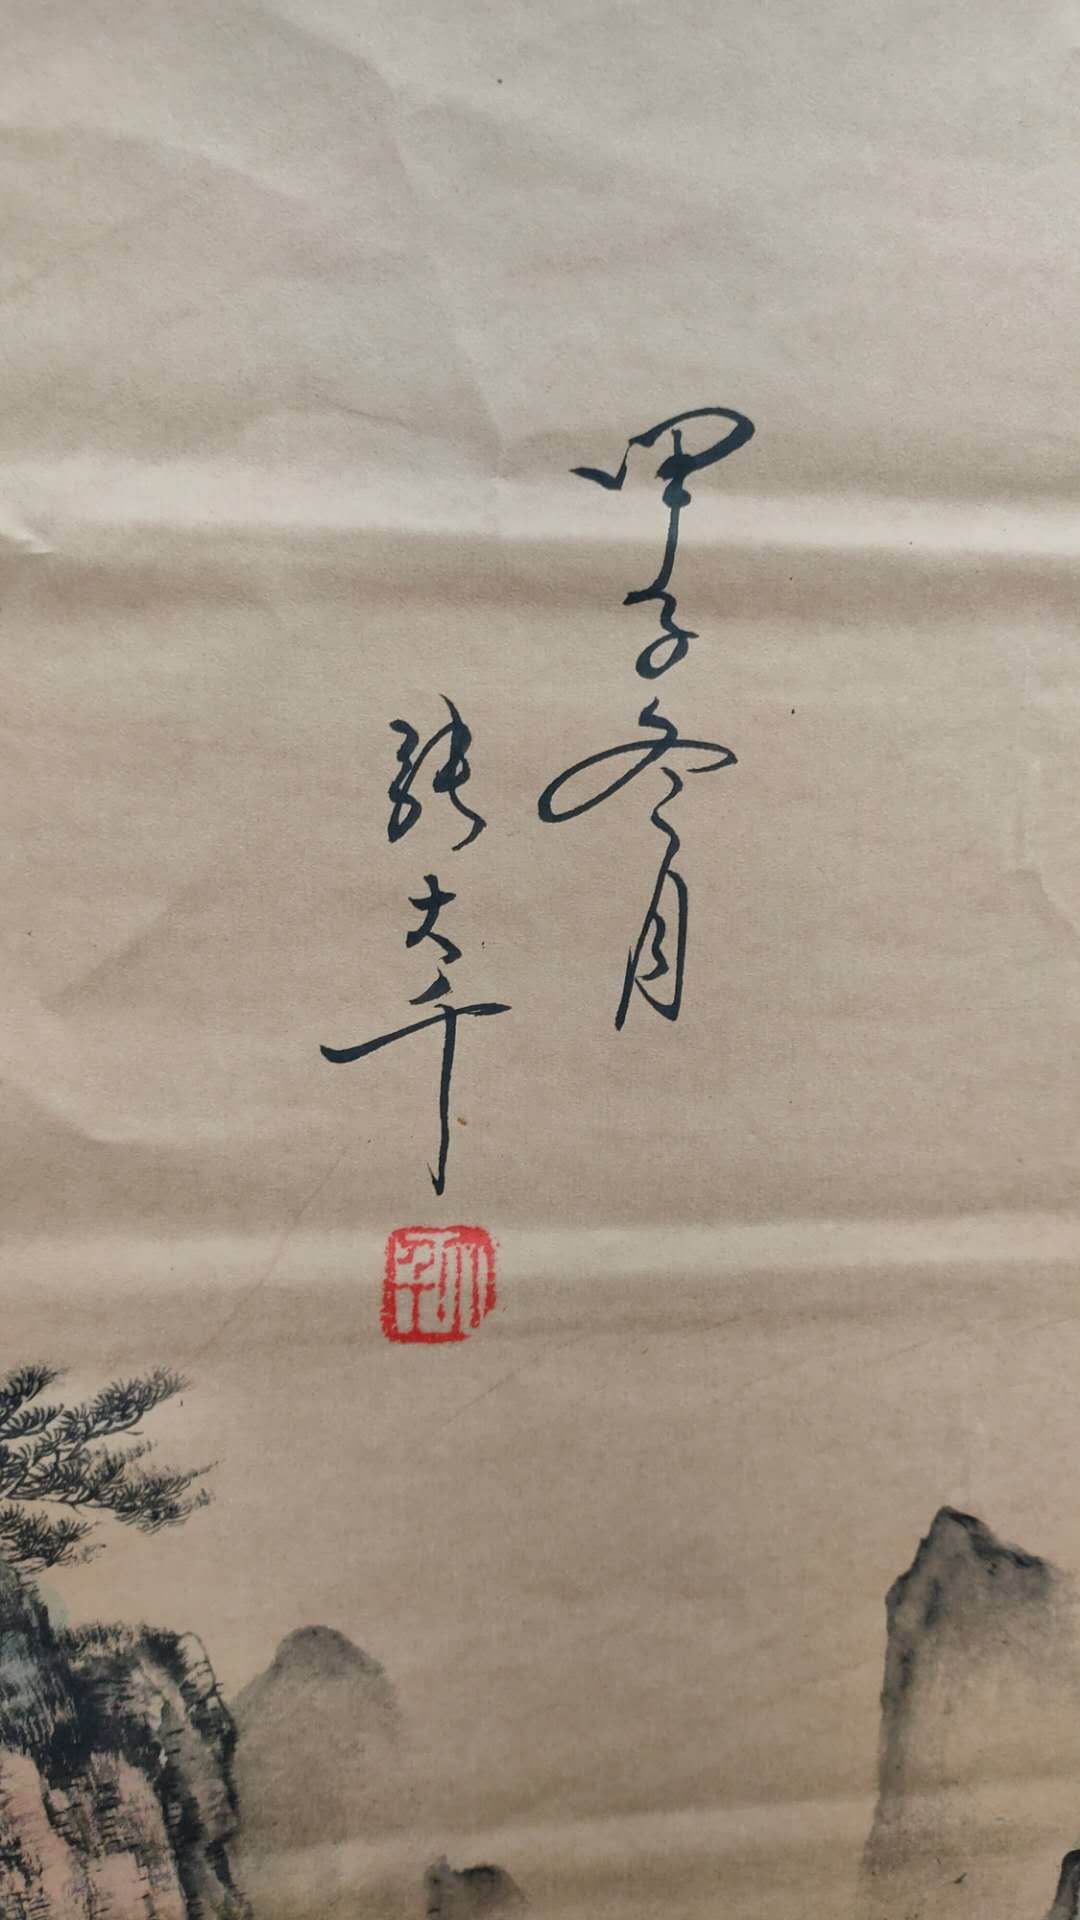 甲子冬月
张大千